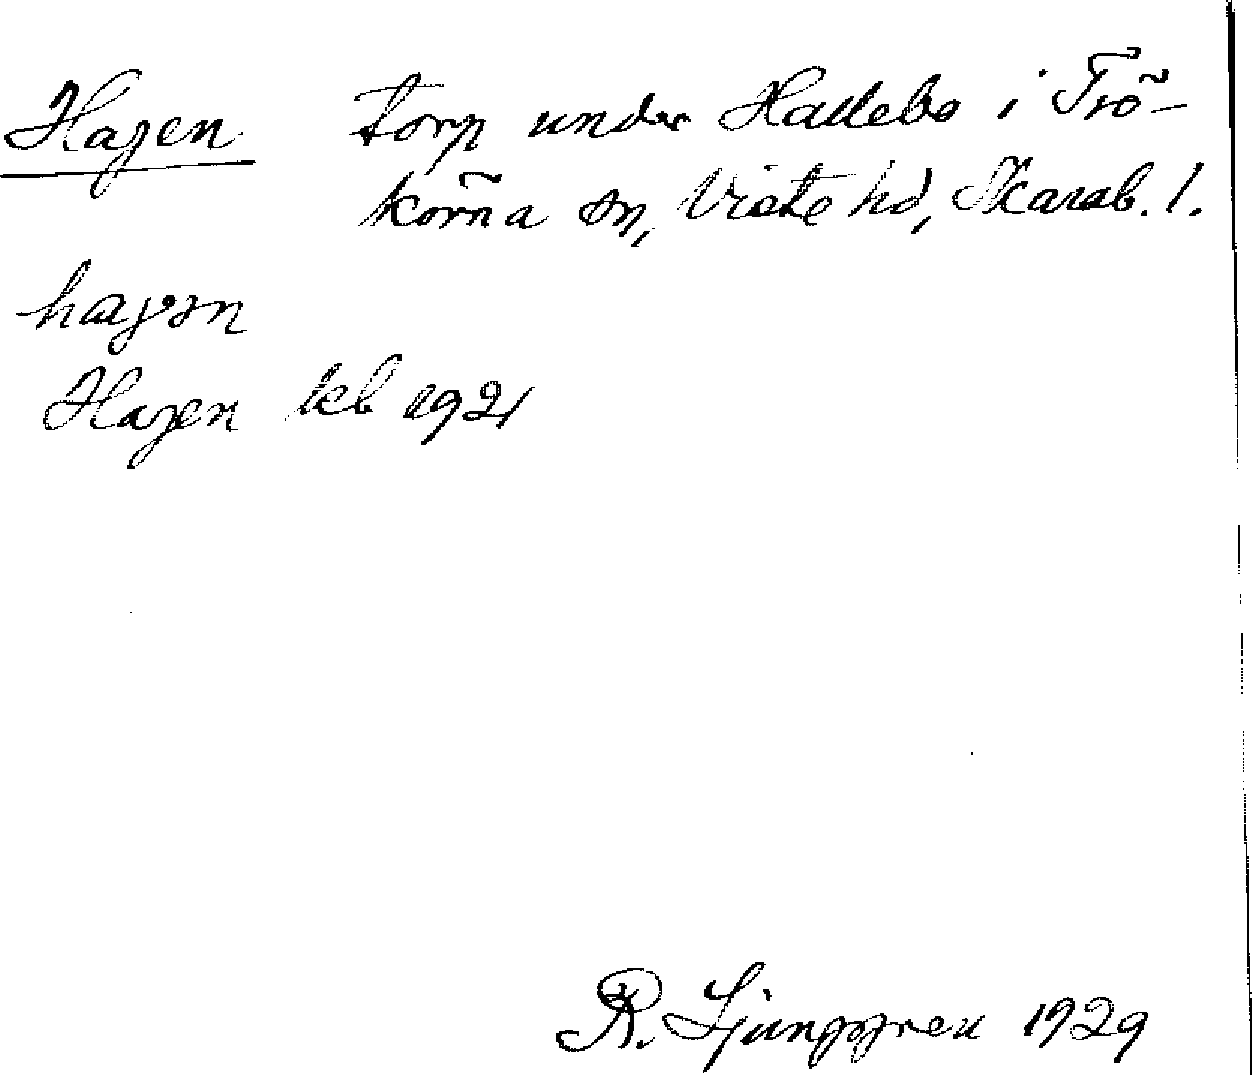 Hagen torp under Hallebo i Trö-
körna sn, Viste hd, Skarab. l.
hagən
Hagen kb 1921
R. Ljunggren 1929